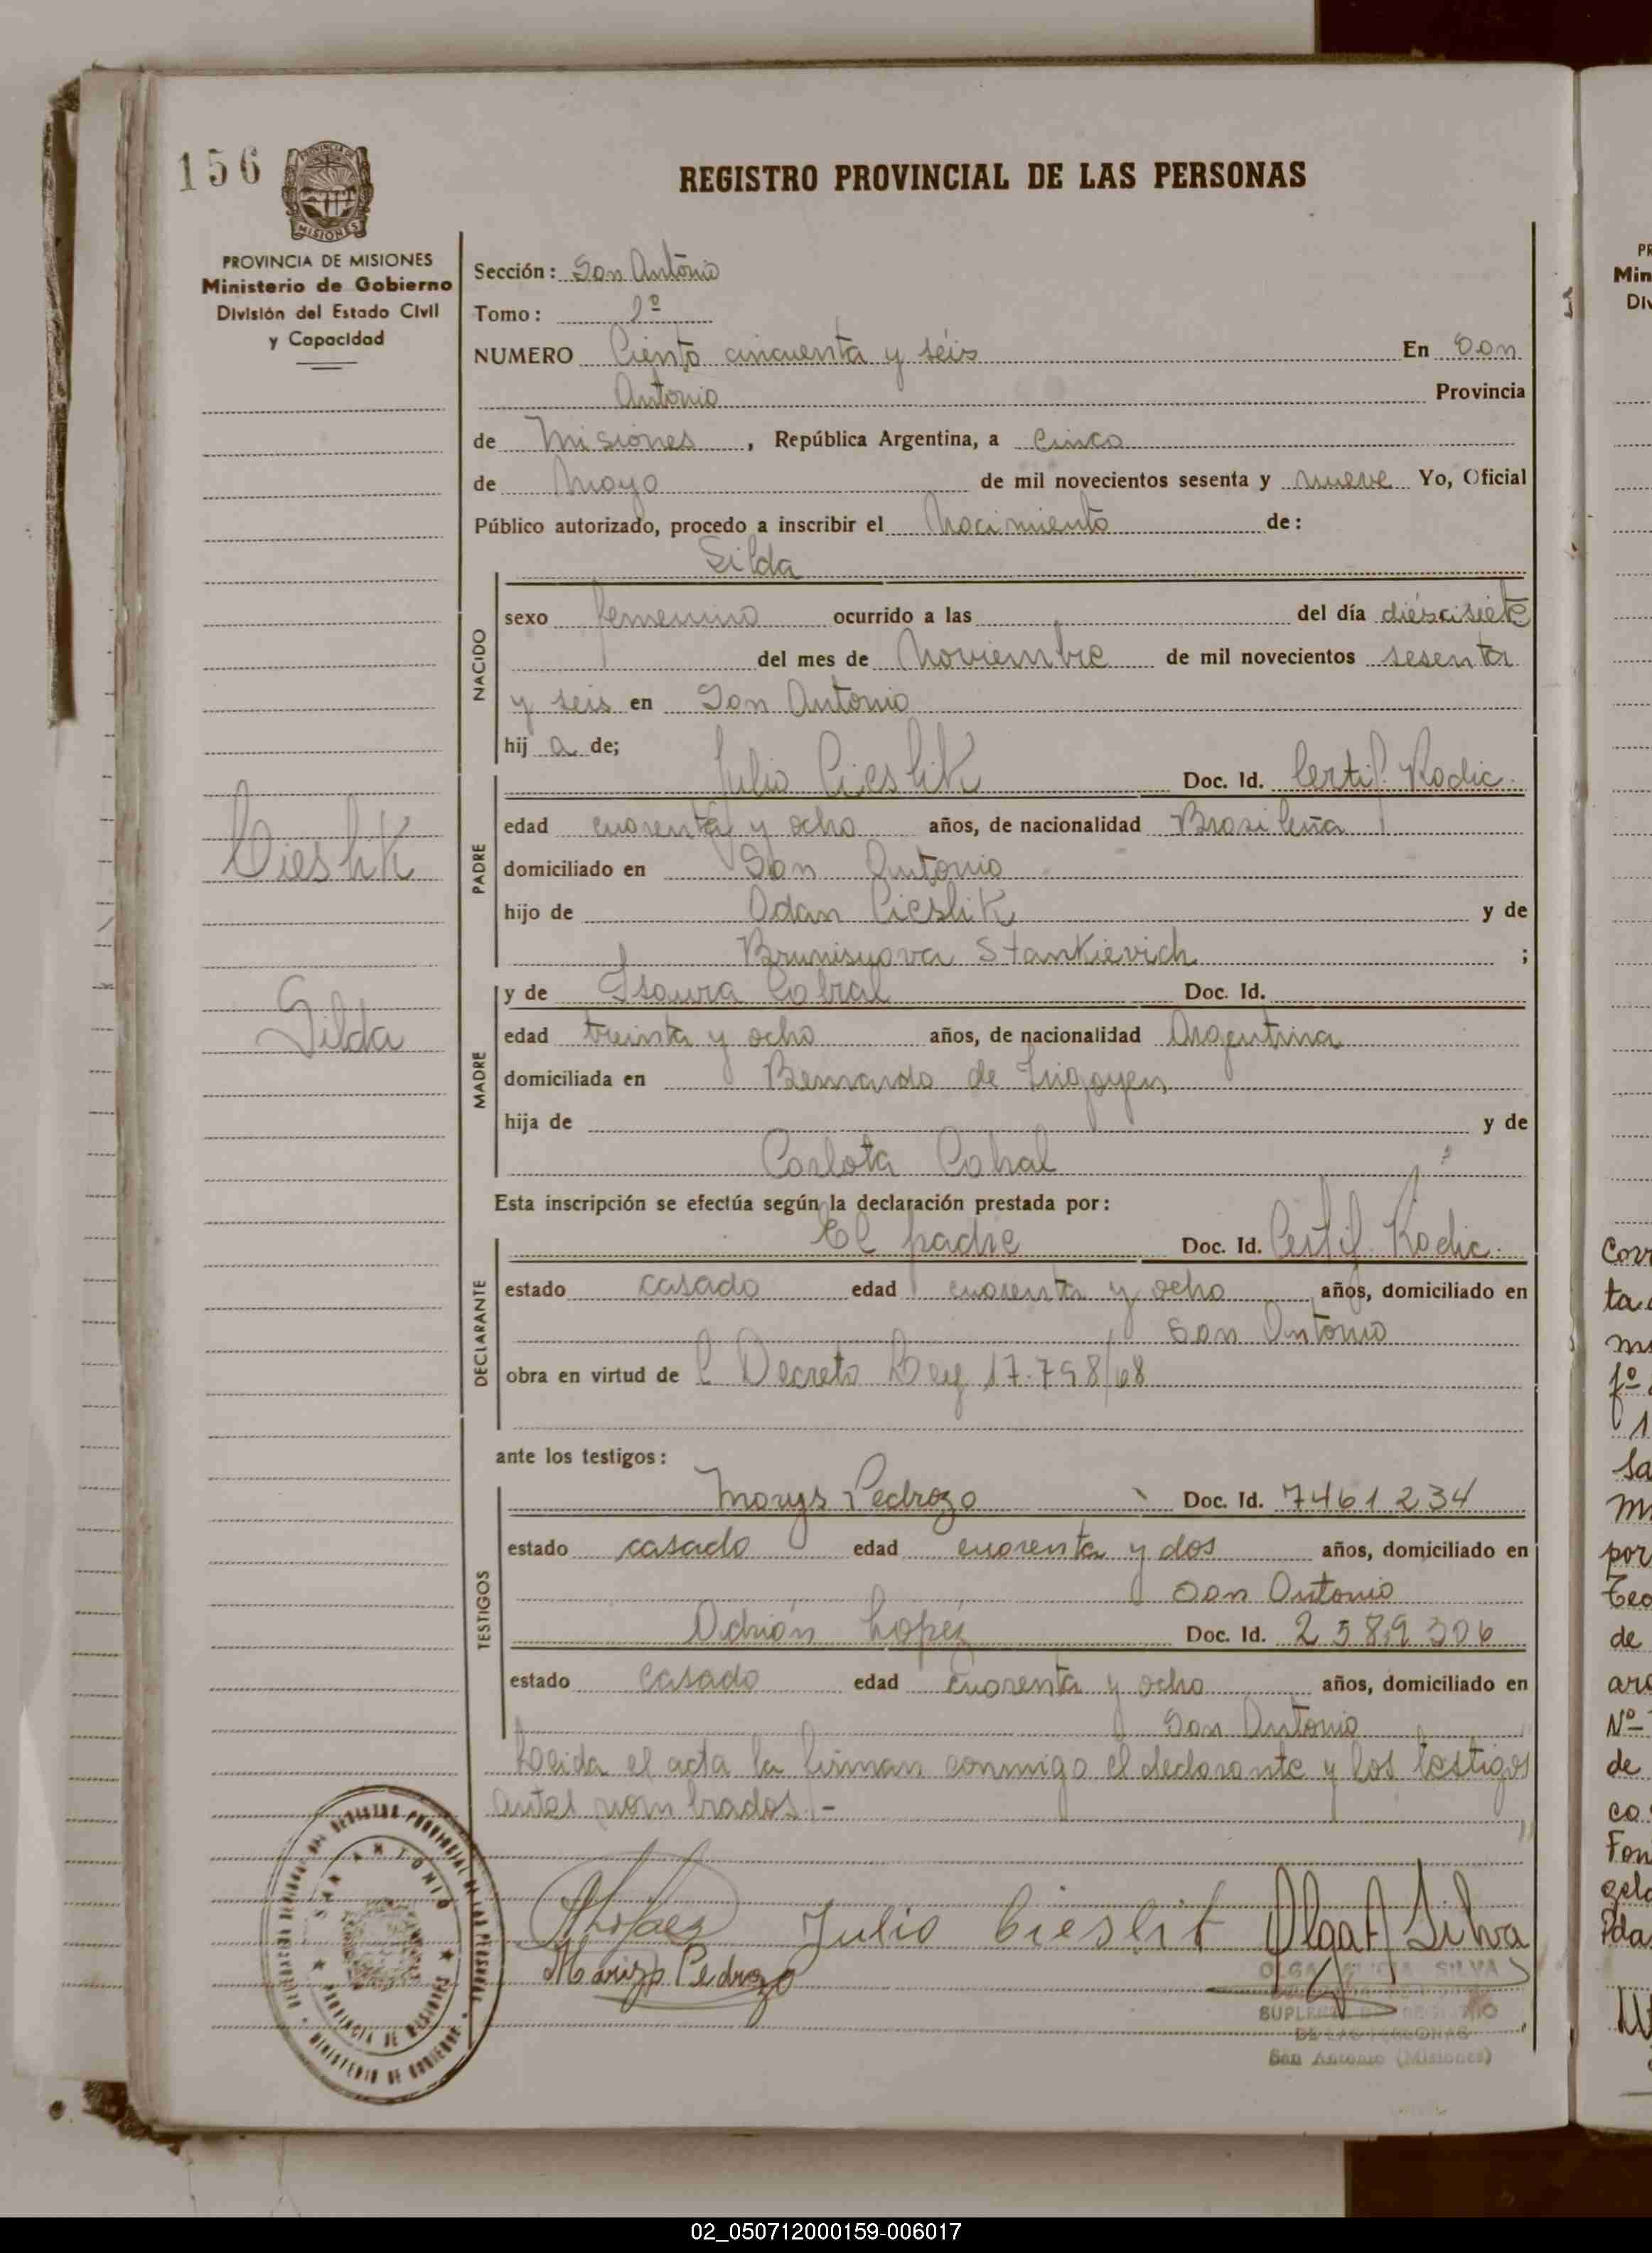 156
REGISTRO PROVINCIAL DE LAS PERSONAS
MISIONES
PROVINCIA DE MISIONES
Ministerio de Gobierno
División del Estado Civil
y Capacidad
Sección: San Antonio
Tomo:
NUMERO Ciento cincuenta y séis En San
Antonio Provincia
de Misiones, República Argentina, a Cinco
de Mayo de mil novecientos sesenta y nueve Yo, Oficial
Público autorizado, procedo a inscribir el Nacimiento de:
Silda
NACIDO
sexo femenino ocurrido a las del día diéscisiete
del mes de Noviembre de mil novecientos sesenta
y seis en San Antonio
hij a de;
PADRE
Julio Cieslik Doc. Id. Certif. Radic.
edad cuarenta y ocho años, de nacionalidad Brasileña
domiciliado en San Antonio
hijo de Adan Cieslik y de
Stankievich ;
Cieslik
Silda
MADRE
y de Isaura Cabral Doc. Id.
edad treinta y ocho años, de nacionalidad Argentina
domiciliada en Bernardo de Irigoyen
hija de y de
Carlota Cabral
Esta inscripción se efectúa según la declaración prestada por:
DECLARANTE
El padre Doc. Id. Certif. Radic.
estado casado edad cuarenta y ocho años, domiciliado en
San Antonio
obra en virtud de l Decreto Ley 17.798/68
ante los testigos:
TESTIGOS
Marys Pedrozo Doc. Id. 7461234
estado casado edad cuarenta y dos años, domiciliado en
San Antonio
Adrián Lopéz Doc. Id. 2589306
estado casado edad cuarenta y ocho años, domiciliado en
San Antonio
Leida el acta la firman conmigo el declarante y los testigos
antes nombrados.-
ALopez Julio Cieslik Olga A Silva
Pedrozo
OLGA ALICIA SILVA
DE LAS PERSONAS
San Antonio (Misiones)
SAN ANTONIO
PROVINCIA DE MISIONES
MINISTERIO DE GOBIERNO
02_050712000159-006017